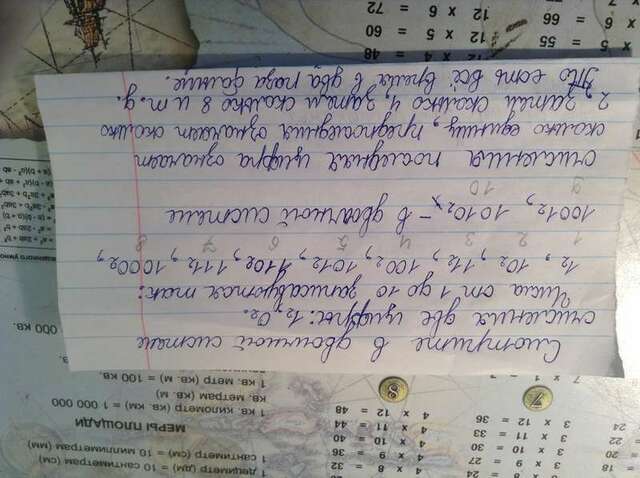 18
20
22
24
3 x 8 = 24
3 x 9 = 27
3 x 10 = 30
3 x 11 = 33
3 x 12 = 36
4 x 8 = 32
4 x 9 = 36
4 x 10 = 40
4 x 11 = 44
4 x 12 = 48
7
8
1 дециметр (дм) = 10 сантиметрам (см)
1 сантиметр (см) = 10 миллиметрам (мм)
МЕРЫ ПЛОЩАДИ
1 кв. километр (кв. км) = 1 000 000
кв. метрам (кв. м)
1 кв. метр (кв. м) = 100 кв.
000 кв.
Смотрите в двоичной системе
счисления две цифры: 1₂, 0₂.
Числа от 1 до 10 записываются так:
1₂, 10₂, 11₂, 100₂, 101₂, 110₂, 111₂, 1000₂,
1 2 3 4 5 6 7 8
1001₂, 1010₂, – в двоичной системе
9 10
счисления последняя цифра означает
сколько единиц, предпоследняя означает сколько
2, затем сколько 4, затем сколько 8 и т.д.
То есть всё время в два раза больше.
x 5 = 55
x 6 = 66
12 x 4 = 48
12 x 5 = 60
12 x 6 = 72